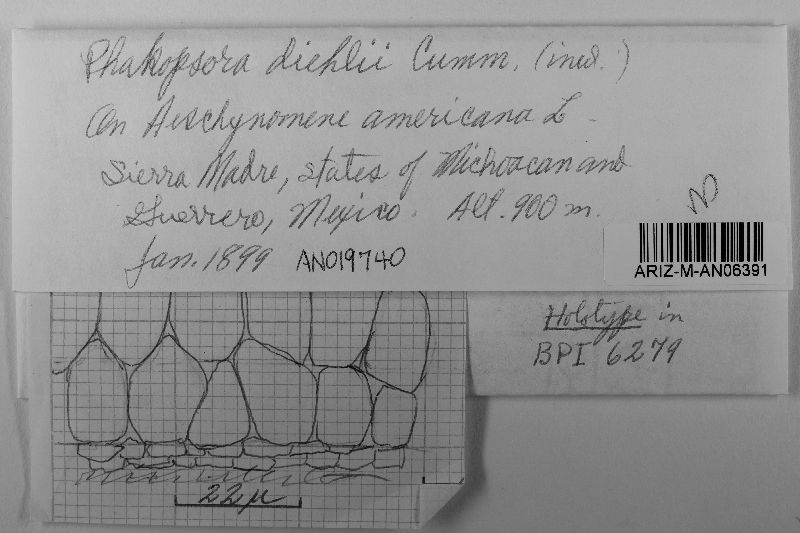 Phakopsora diehlii Cumm. (ined.)
On Aeschynomene americana L.
Sierra Madre, states of Michoacan and
Guerrero, Mexico. Alt. 900 m.
Jan. 1899 AN019740
ARIZ-M-AN06391
Holotype in
BPI 6279
22 µ